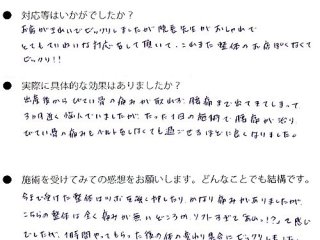 ● 対応等はいかがでしたか?
お店がきれいでビックリしましたが院長先生がおしゃれで
とてもていねいな対応をして頂いて、これまた整体のお店ぽくなくて
ビックリ!!
● 実際に具体的な効果はありましたか?
出産後からびてい骨の痛みが取れず、腰痛まで出てきてしまって
3ヶ月近く悩んでいましたが、たった1回の施術で腰痛が治り
びてい骨の痛みも
なくても過ごせるほどに良くなりました。
● 施術を受けてみての感想をお願いします。どんなことでも結構です。
今まで受けた整体はツボを強く押したり、かなり痛みがありましたが
こちらの整体は全く痛みが無いどころか、ソフトすぎて「あっ!?」て感じ
でしたが、1時間やってもらった後の体の変わり
にビックリしまし